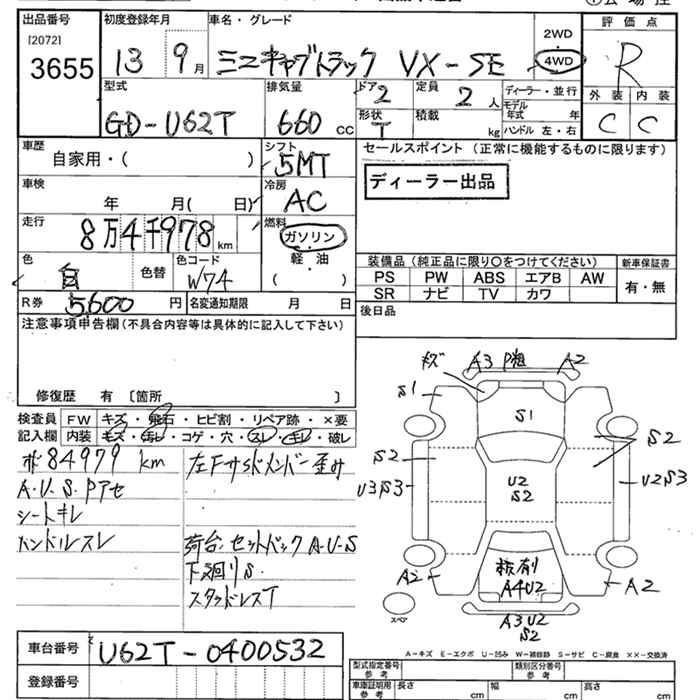 出品番号
[2072]
3655
初度登録年月
13 9月
車名・グレード
ミニキャブトラック VX-SE
2WD
4WD
評価点
R
外装 内装
C C
型式
GD-U62T
排気量
660 CC
ドア
2
形状
T
定員
2 人
積載
kg
ディーラー・並行
モデル年式 年
ハンドル 左・右
車歴
自家用・( )
シフト
5MT
セールスポイント (正常に機能するものに限ります)
ディーラー出品
車検
年 月( 日)
冷房
AC
走行
8万4千978 km
燃料
ガソリン
軽・油
( )
色
白 色替
色コード
W74
装備品(純正品に限り○をつけてください)
新車保証書
PS PW ABS エアB AW
SR ナビ TV カワ
有・無
R券 5,600 円
名変通知期限 月 日
後日品
注意事項申告欄(不具合内容等は具体的に記入して下さい)
修復歴 有 〔箇所 〕
検査員記入欄
FW キズ・飛石・ヒビ割・リペア跡・×要
内装 キズ・汚レ・コゲ・穴・スレ・キレ・破レ
84979 km
A・U・S Pアセ
シートキレ
ハンドルスレ
左Fサイドメンバー歪み
荷台、セットバック A-U-S
下廻りS
スタッドレスT
キズ A3 P粗 A2
S1
S1
S2
S2
U3S3
U2
S2
U2S3
A2
A4U2
A2
スペア
A3U2
S2
車台番号 U62T-0400532
登録番号
A-キズ E-エクボ U-凹み W-補修跡 S-サビ C-腐食 XX-交換済
型式指定番号
参考
類別区分番号
参考
車庫証明用
参考
長さ cm
幅 cm
高さ cm